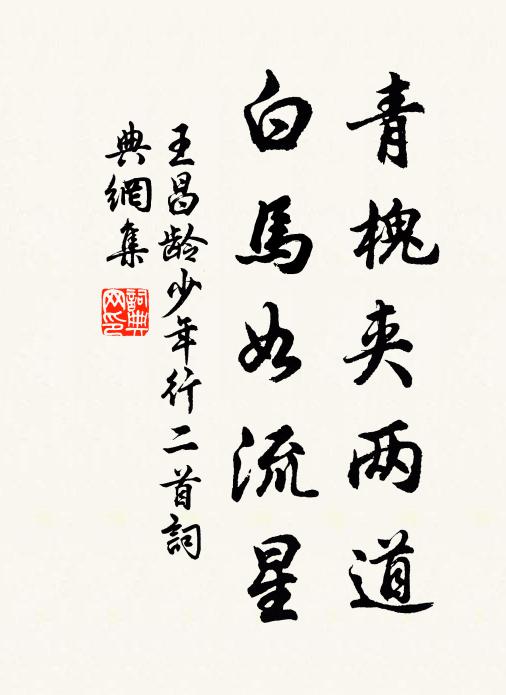 青槐夹两道
白馬如流星
王昌龄少年行二首詞
典網集
詞典
网印